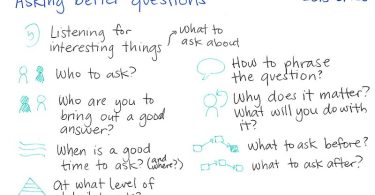 Asking better questions
Listening for
interesting things
What to
ask about
Who to ask?
Who are you to
bring out a good
answer?
When is a good
time to ask? (and
where?)
At what level of
How to phrase
the question?
Why does it matter?
What will you do with
it?
what to ask before?
what to ask after?